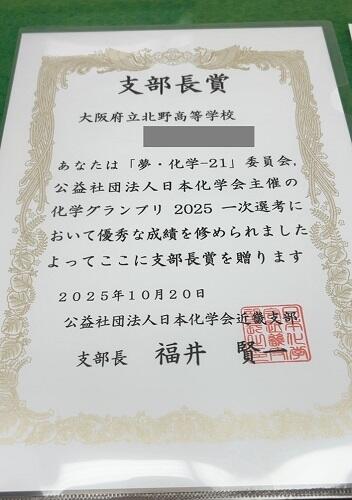 支部長賞
大阪府立北野高等学校
あなたは「夢・化学-21」委員会,
公益社団法人日本化学会主催の
化学グランプリ 2025 一次選考に
おいて優秀な成績を修められました
よってここに支部長賞を贈ります
2025年10月20日
公益社団法人日本化学会近畿支部
支部長 福井 賢一